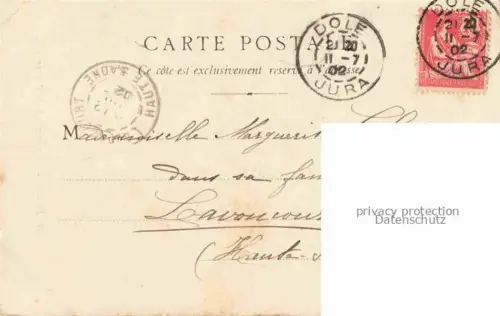 CARTE POSTA
Ce côté est exclusivement réservé à l'adresse
DOLE
21 20
11 -7
02
JURA
DOLE
21 20
11 -7
02
JURA
HAUTE SAONE
02
Mademoiselle Marguerit
dans sa fam
Lavoncou
(Haute-
privacy protection
Datenschutz